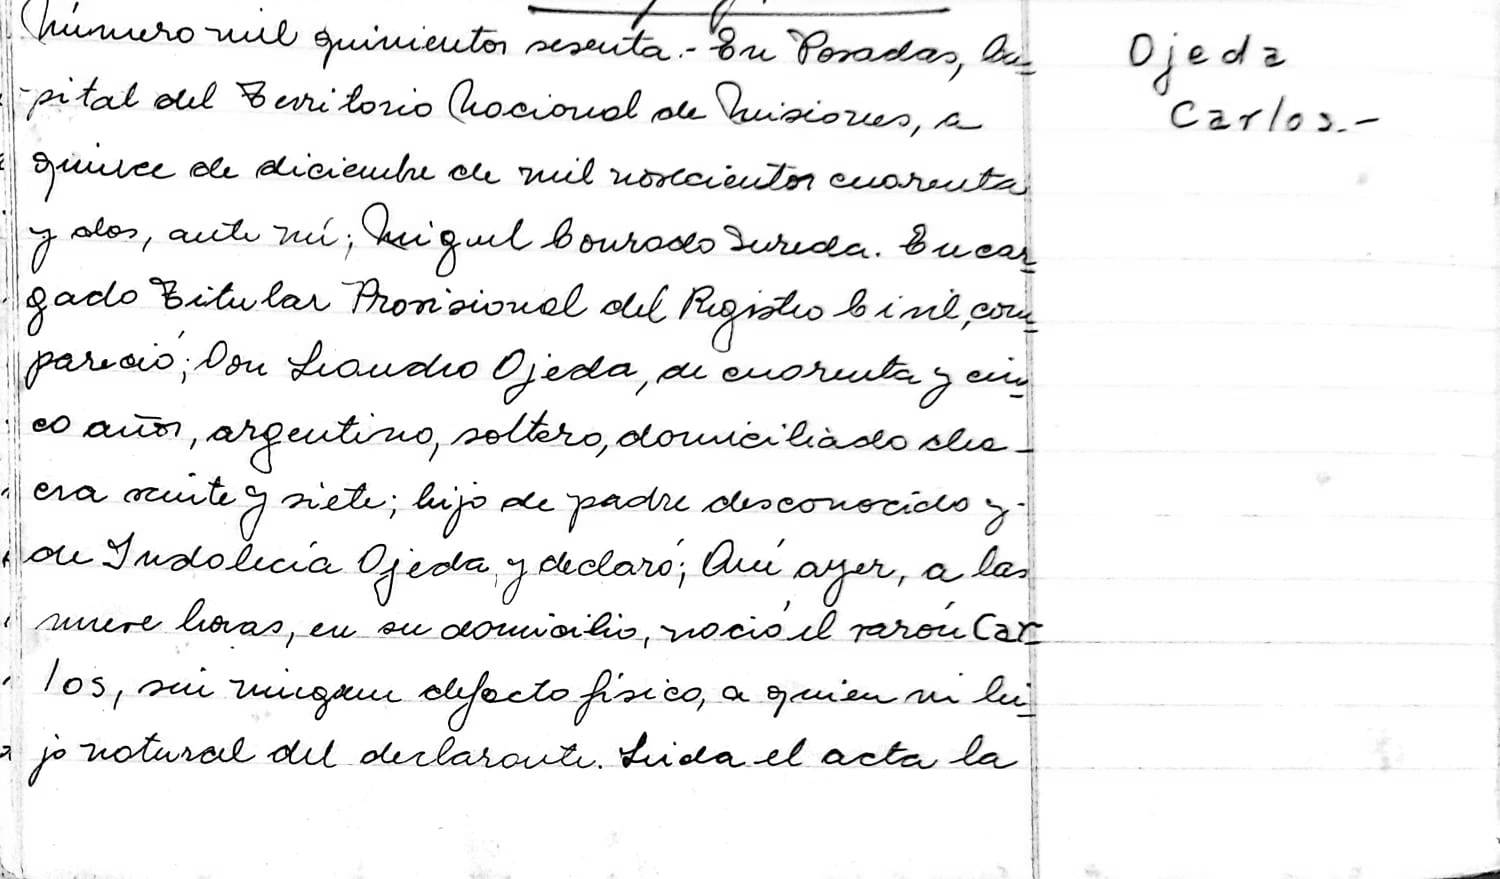 Número mil quinientos sesenta.- En Posadas, Ca=
pital del Territorio Nacional de Misiones, a
quince de diciembre de mil novecientos cuarenta
y dos, ante mí; Miguel Conrado Sureda. Encar=
gado Titular Provisional del Registro Civil, com=
pareció; Don Leandro Ojeda, de cuarenta y cin=
co años, argentino, soltero, domiciliado cha-
cra veinte y siete; hijo de padre desconocido y
de Indolecia Ojeda, y declaró; Qué ayer, a las
nueve horas, en su domicilio, nació el varón Car=
los, sin ningun defecto físico, a quien vi hi=
jo natural del declarante. Leida el acta la
Ojeda
Carlos.-